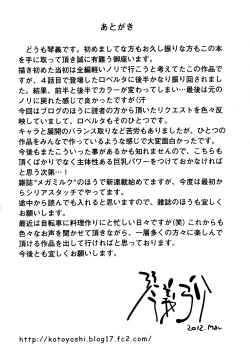 あとがき
どうも琴義です。初めましてな方もお久し振りな方もこの本
を手に取って頂き誠に有難う御座います。
描き初めた当初は全編軽いノリで行こうと考えてたこの作品で
すが、4話目で登場したロベルタに後半かなり振り回されまし
た。結果、前半と後半でカラーが変わてしまい…最後は元の
ノリに戻れた感じで良かったですが(汗
今回はブログのほうで読者の方から頂いたリクエストを色々反
映していまして、ロベルタもそのひとつです。
キャラと展開のバランス取りなど苦労もありましたが、ひとつの
作品をみんなで作っているような感じで大変面白かったです。
今後もまたこういった事があるかも知れませんので、こちらも
頂くばかりでなく主体性ある巨乳パワーをつけておかなければ
と思う次第…!
雑誌"メガミルク"のほうで新連載始めてますが、今度は最初か
らシリアスタッチでやってます。
途中から読んでも入れると思いますので、雑誌のほうも宜しく
お願いします。
最近は自転車に料理作りにと忙しい日々ですが(笑)これからも
色々なお声を聞かせて頂きながら、一層多くの方々に楽しんで
頂ける作品を出して行ければと思っております。
今後とも宜しくお願いします。
琴義弓介
2012.Mar
http://kotoyoshi.blog17.fc2.com/